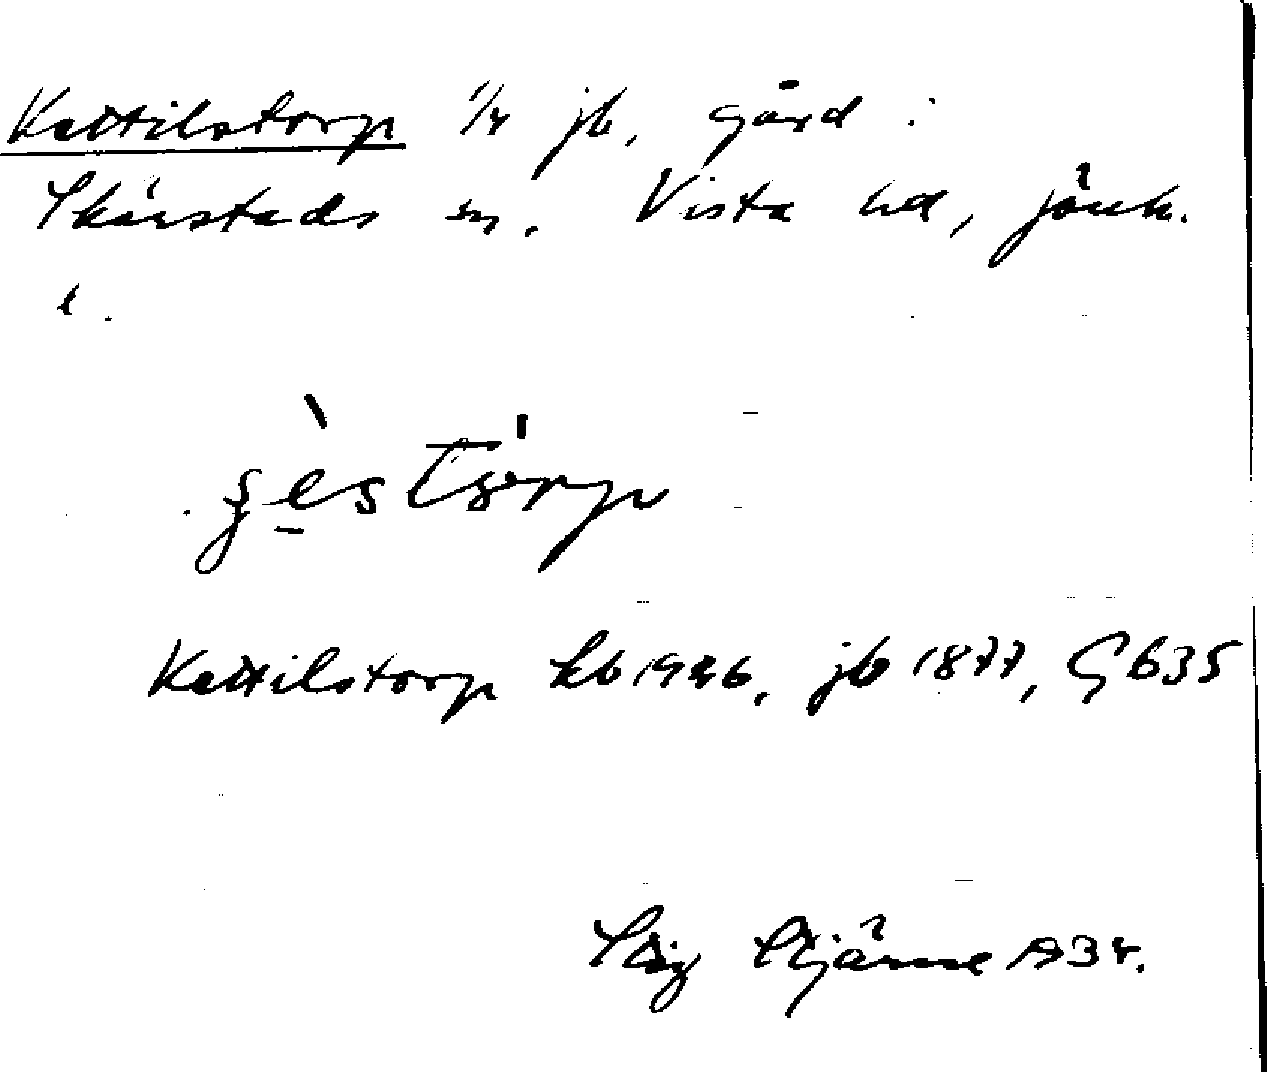 Kettilstorp 1/4 jb, gård i
Skärstads sn. Vista hd, Jönk.
l.
Kettilstorp kb 1926, jb 1877, G b35
Stig Stjärne 1934.